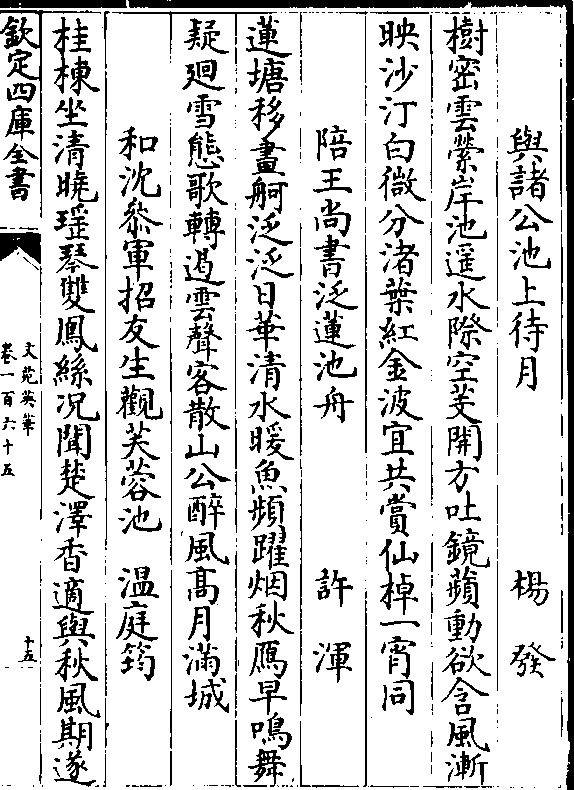 與諸公池上待月　楊發
樹密雲縈岸池遥水際空芰開方吐鏡蘋動欲含風漸
映沙汀白微分渚葉紅金波宜共賞仙棹一宵同
陪王尚書泛蓮池舟　許渾
蓮塘移畫舸泛泛日華清水暖魚頻躍烟秋鴈早鳴舞
疑廻雪態歌轉遏雲聲客散山公醉風髙月滿城
和沈叅軍招友生觀芙蓉池　温庭筠
桂棟坐清曉瑶琴雙鳳絲况聞楚澤香適與秋風期遂
欽定四庫全書
文苑英華
卷一百六十五
十五